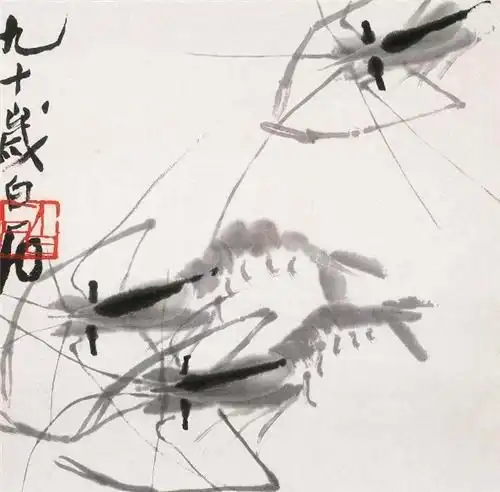 九十歳白石